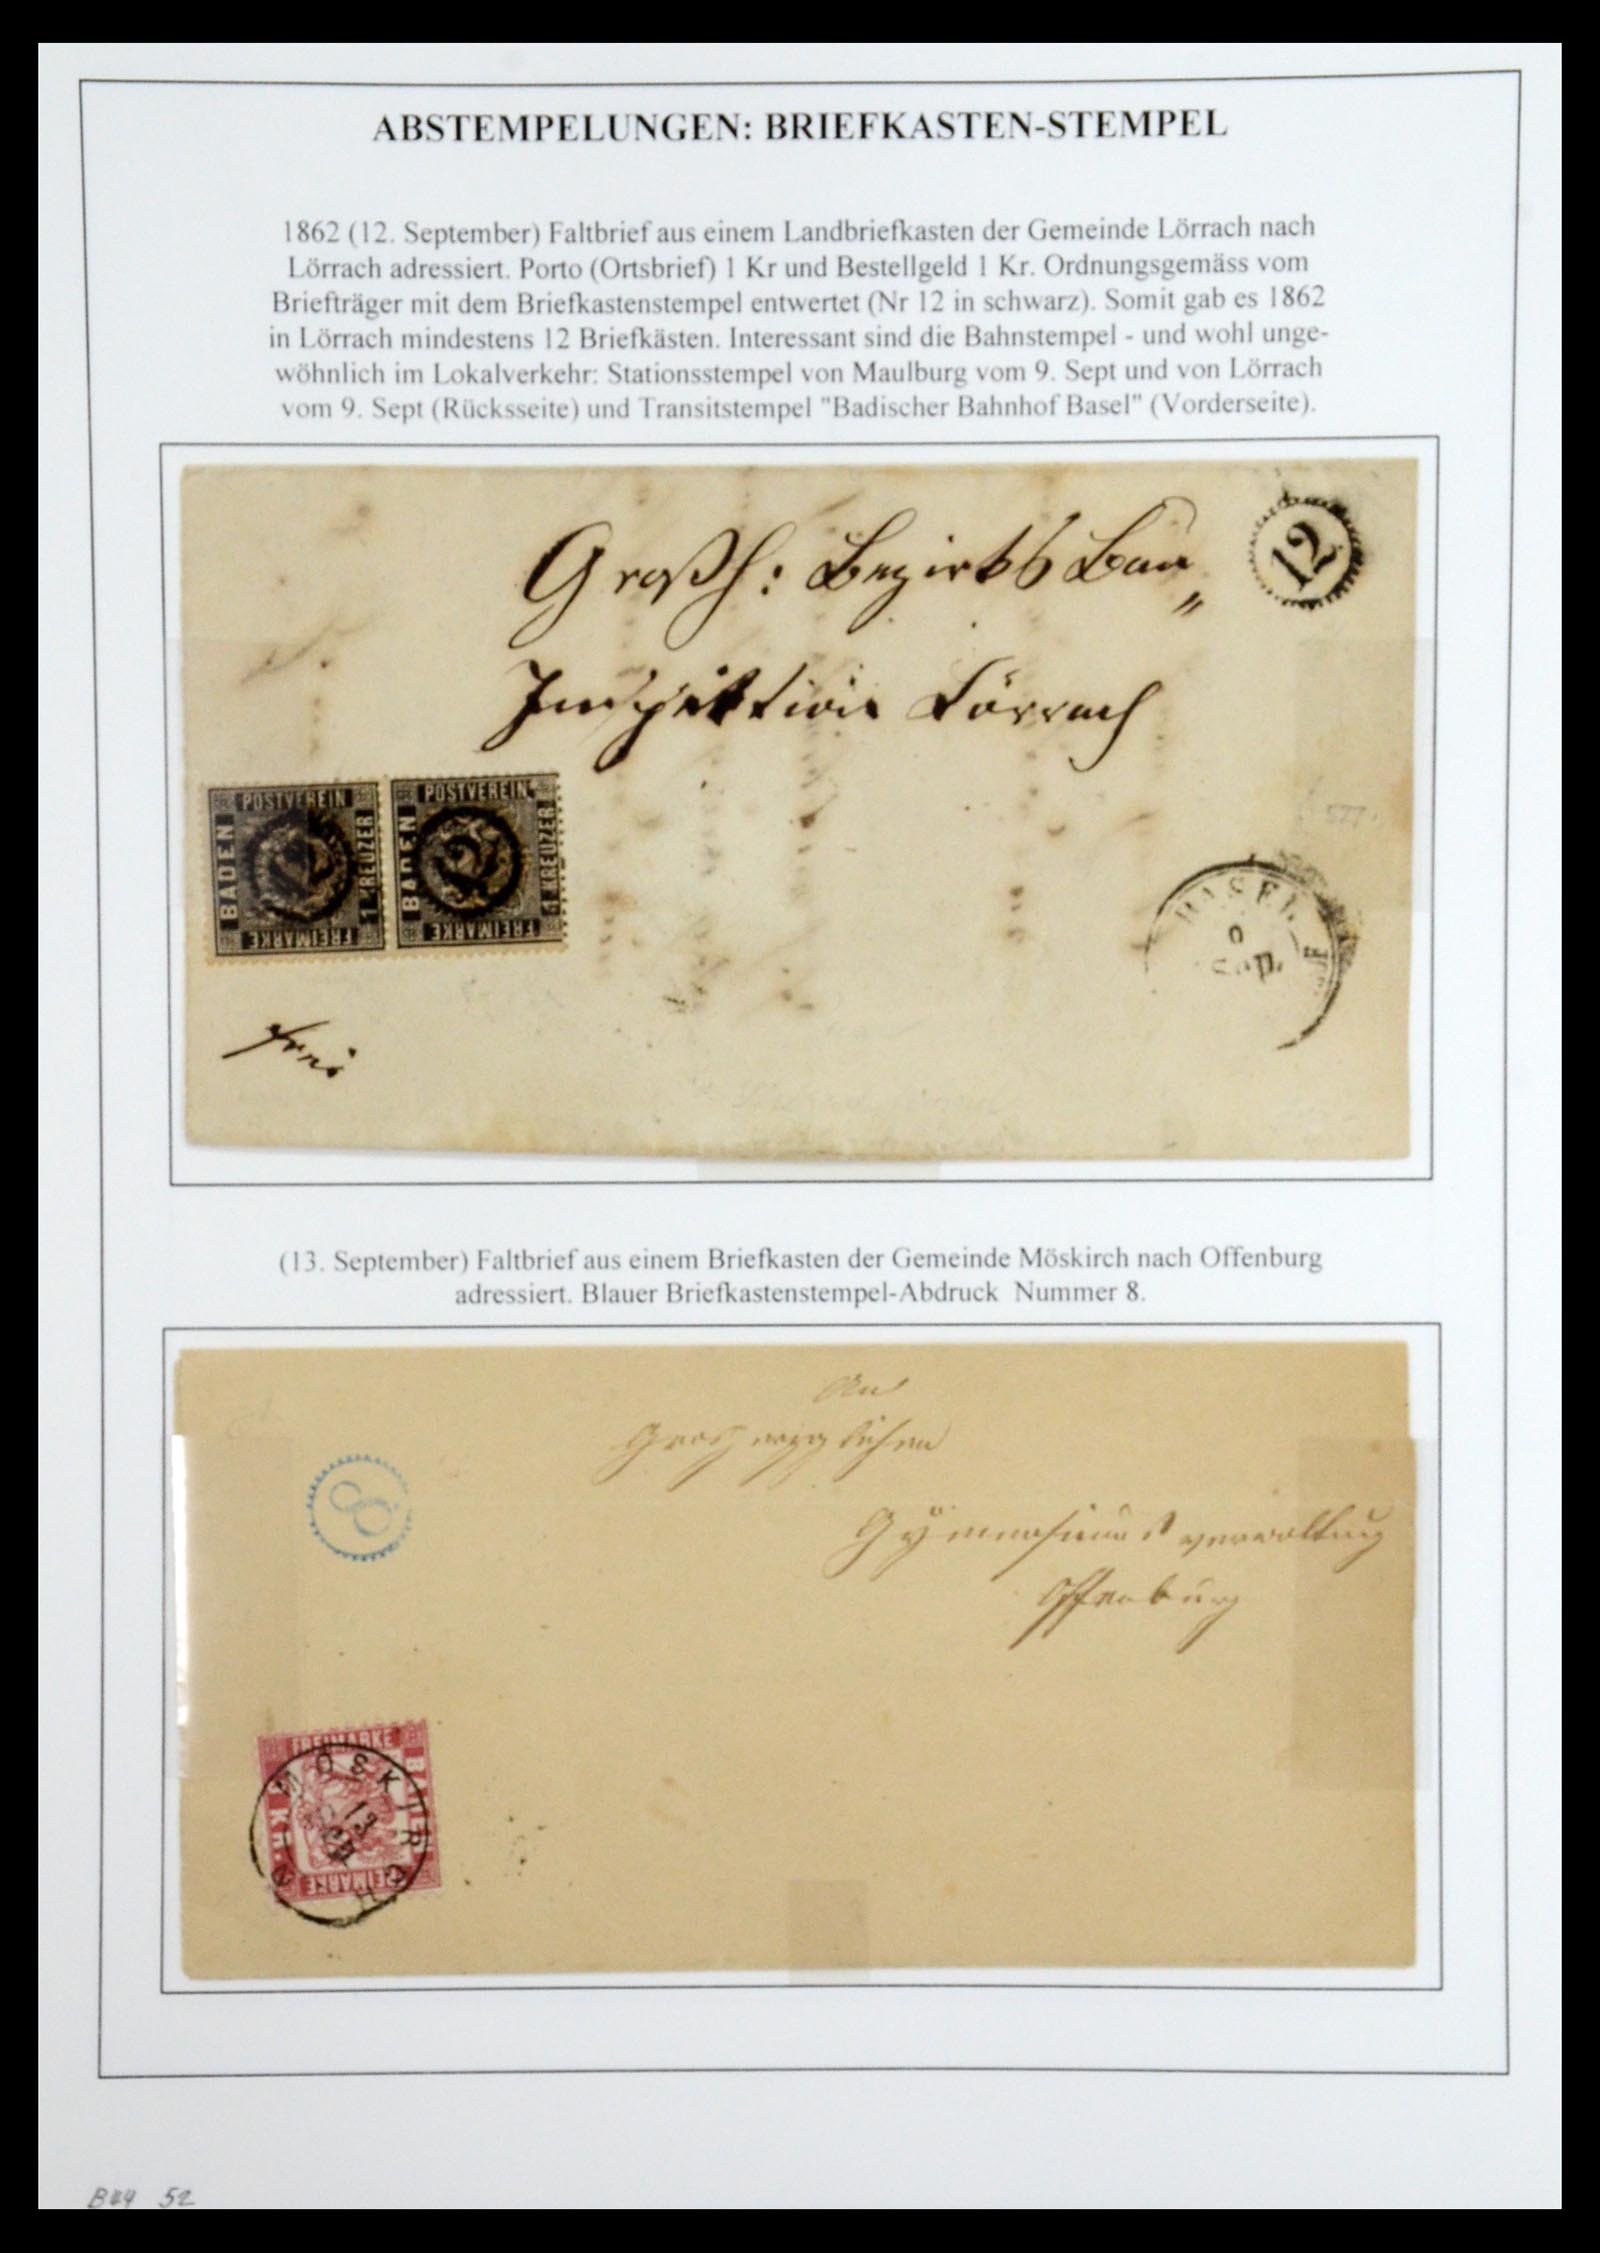 ABSTEMPELUNGEN: BRIEFKASTEN-STEMPEL
1862 (12. September) Faltbrief aus einem Landbriefkasten der Gemeinde Lörrach nach
Lörrach adressiert. Porto (Ortsbrief) 1 Kr und Bestellgeld 1 Kr. Ordnungsgemäss vom
Briefträger mit dem Briefkastenstempel entwertet (Nr 12 in schwarz). Somit gab es 1862
in Lörrach mindestens 12 Briefkästen. Interessant sind die Bahnstempel - und wohl unge-
wöhnlich im Lokalverkehr: Stationsstempel von Maulburg vom 9. Sept und von Lörrach
vom 9. Sept (Rücksseite) und Transitstempel "Badischer Bahnhof Basel" (Vorderseite).
12
Großh: Bezirks Bau„
Inspektion Lörrach
POSTVEREIN
BADEN
1 KREUZER
FREIMARKE
POSTVEREIN
BADEN
1 KREUZER
FREIMARKE
577.
BASEL
9
frei
(13. September) Faltbrief aus einem Briefkasten der Gemeinde Möskirch nach Offenburg
adressiert. Blauer Briefkastenstempel-Abdruck Nummer 8.
An
Großherzoglichen
8
Gÿmnasiumsverwaltung
Offenburg
FREIMARKE
KR.
FREIMARKE
MÖSKIRCH
13
52